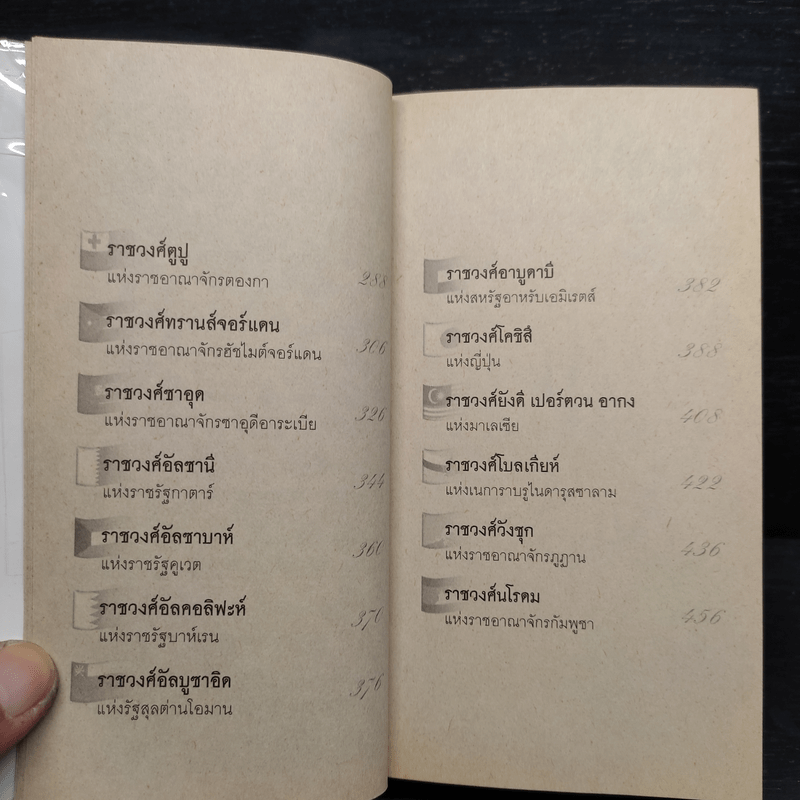 ราชวงศ์ตูปู
แห่งราชอาณาจักรตองกา 288
ราชวงศ์ทรานส์จอร์แดน
แห่งราชอาณาจักรฮัชไมต์จอร์แดน 306
ราชวงศ์ซาอุด
แห่งราชอาณาจักรซาอุดีอาระเบีย 326
ราชวงศ์อัลซานี
แห่งราชรัฐกาตาร์ 344
ราชวงศ์อัลซาบาห์
แห่งราชรัฐคูเวต 360
ราชวงศ์อัลคอลิฟะห์
แห่งราชรัฐบาห์เรน 370
ราชวงศ์อัลบูซาอิด
แห่งรัฐสุลต่านโอมาน 376
ราชวงศ์อาบูดาบี
แห่งสหรัฐอาหรับเอมิเรตส์ 382
ราชวงศ์โคชิสึ
แห่งญี่ปุ่น 388
ราชวงศ์ยังดี เปอร์ตวน อากง
แห่งมาเลเซีย 408
ราชวงศ์โบลเกียห์
แห่งเนการาบรูไนดารุสซาลาม 422
ราชวงศ์วังชุก
แห่งราชอาณาจักรภูฏาน 436
ราชวงศ์นโรดม
แห่งราชอาณาจักรกัมพูชา 456